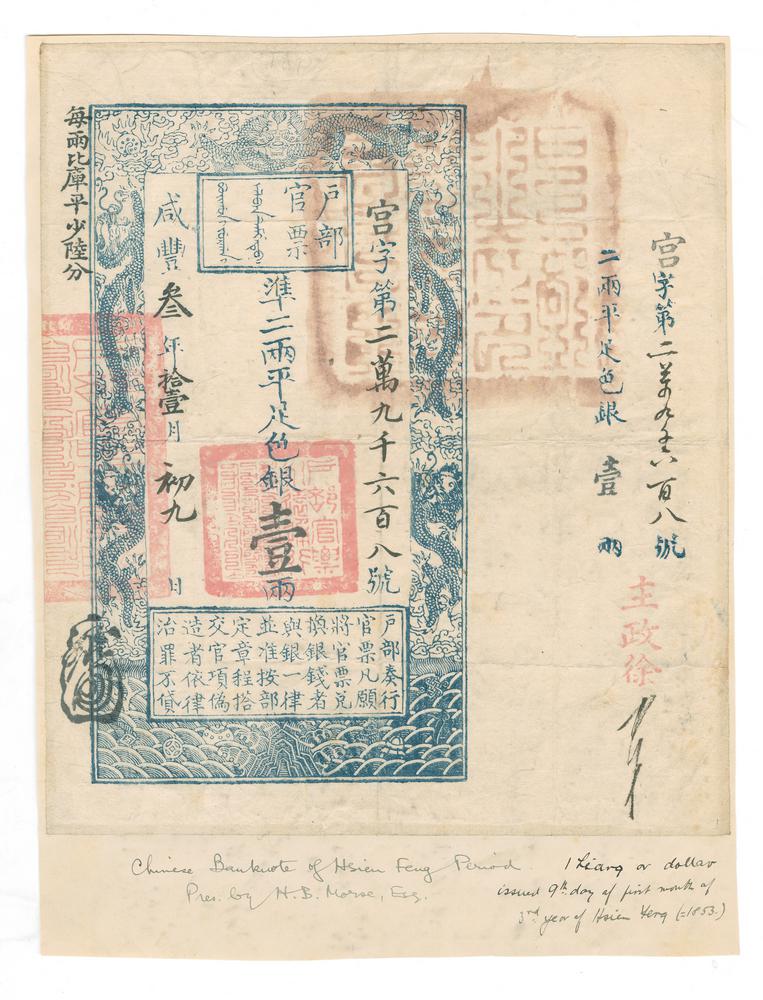 宫字第二萬九千六百八號
二兩平足色銀 壹 兩
主政徐
戶部
官票
宫字第二萬九千六百八號
準二兩平足色銀壹兩
咸豐叁年拾壹月初九日
每兩比庫平少陸分
戶部奏行
官票凡願
將官票兌
換銀錢者
與銀一律
並准按部
定章程搭
交官項偽
造者依律
治罪不貸
Chinese Banknote of Hsien Feng Period.
Pres. by H. B. Morse, Esq.
1 Liang or dollar
issued 9th day of first month of
3rd year of Hsien Feng (=1853.)